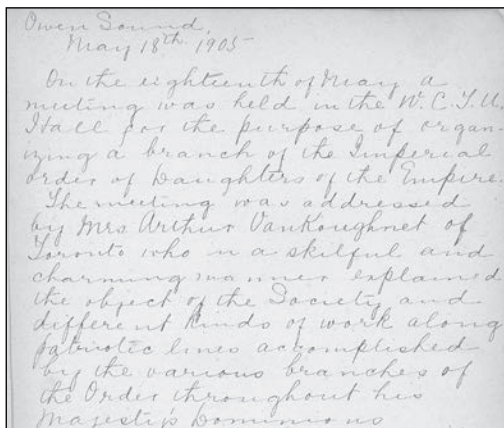 Owen Sound,
May 18th. 1905
On the eighteenth of May a
meeting was held in the W. C. T. U.
Hall for the purpose of organ-
izing a branch of the Imperial
order of Daughters of the Empire.
The meeting was addressed
by Mrs Arthur VanKoughnet of
Toronto who in a skilful and
charming manner explained
the object of the Society and
different kinds of work along
patriotic lines accomplished
by the various branches of
the Order throughout his
Majesty's Dominions